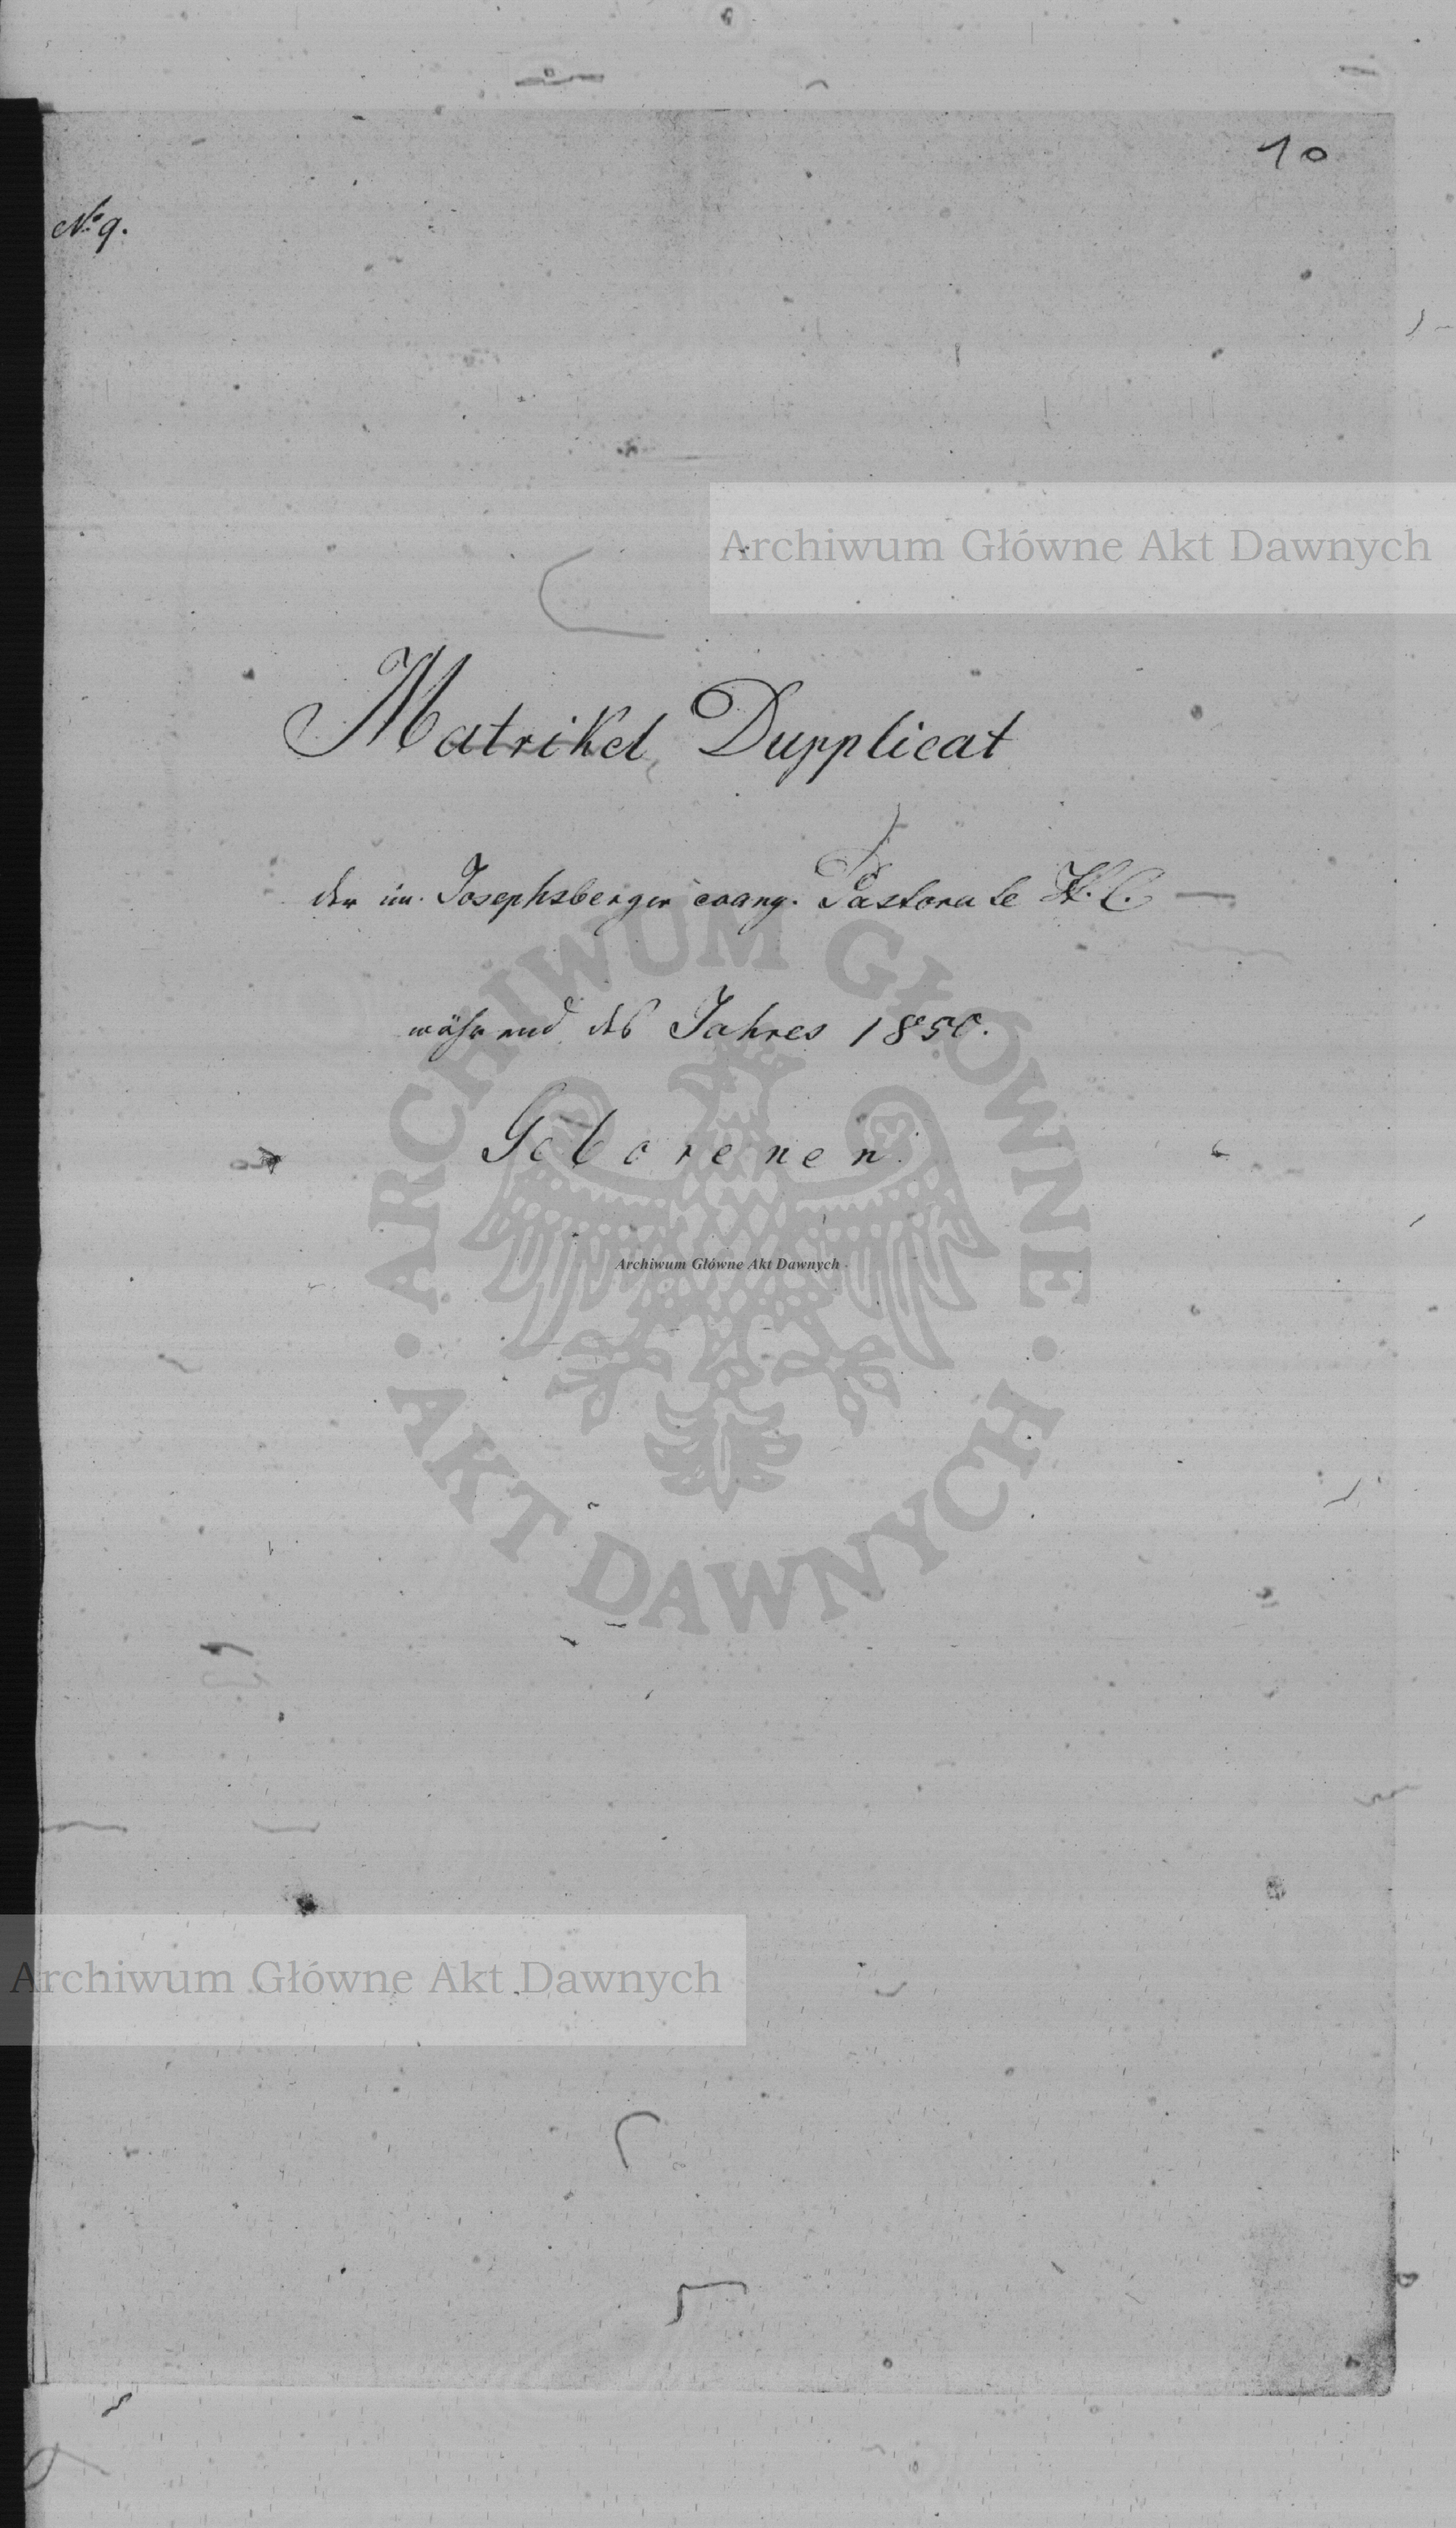 10
No 9.
Archiwum Główne Akt Dawnych
Matrikel Dupplicat
der im Josephsberger evang. Pastorate H. C. —
während des Jahres 1850.
Geborenen.
ARCHIWUM GŁÓWNE
Archiwum Główne Akt Dawnych
AKT DAWNYCH
Archiwum Główne Akt Dawnych